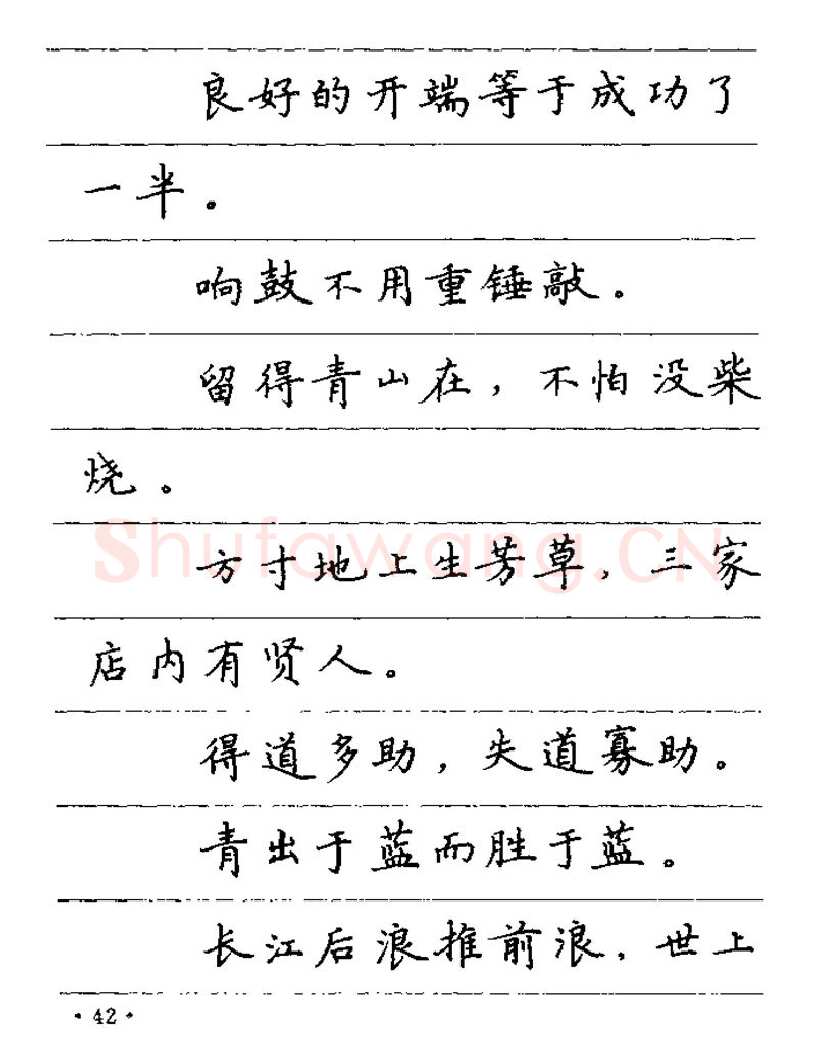 良好的开端等于成功了
一半。
响鼓不用重锤敲。
留得青山在，不怕没柴
烧。
Shufawang.CN
方寸地上生芳草，三家
店内有贤人。
得道多助，失道寡助。
青出于蓝而胜于蓝。
长江后浪推前浪，世上
·42·